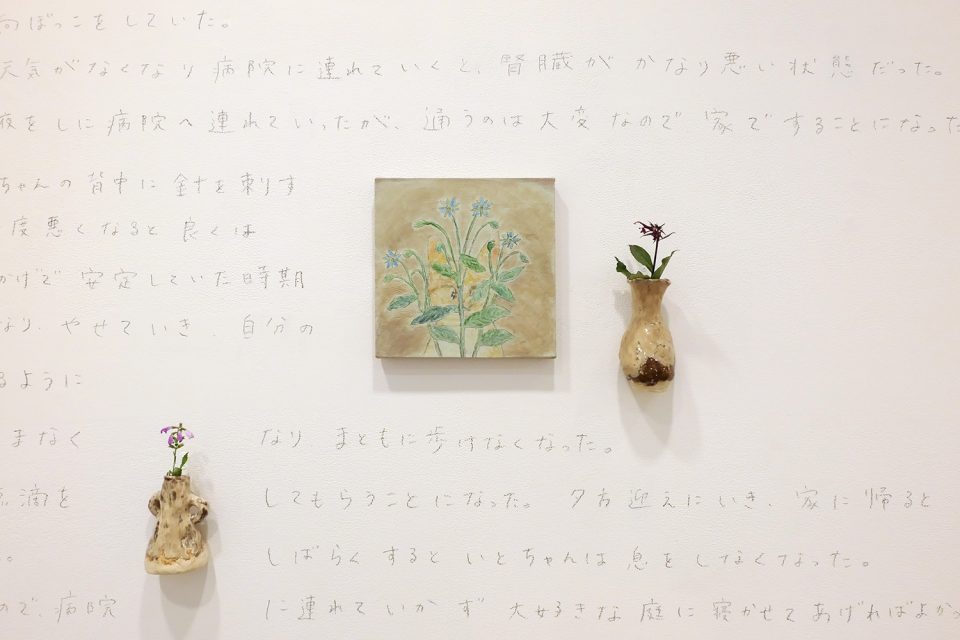 向ぼっこをしていた。
元気がなくなり病院に連れていくと、腎臓がかなり悪い状態だった。
液をしに病院へ連れていったが、通うのは大変なので家ですることになった
ちゃんの背中に針を刺す
度悪くなると良くは
かげで安定していた時期
なり、やせていき、自分の
るように
まなく なり まともに歩けなくなった。
点滴を してもらうことになった。夕方迎えにいき、家に帰ると
。 しばらくするといとちゃんは息をしなくなった。
ので、病院 に連れていかず大好きな庭に寝かせてあげればよかっ